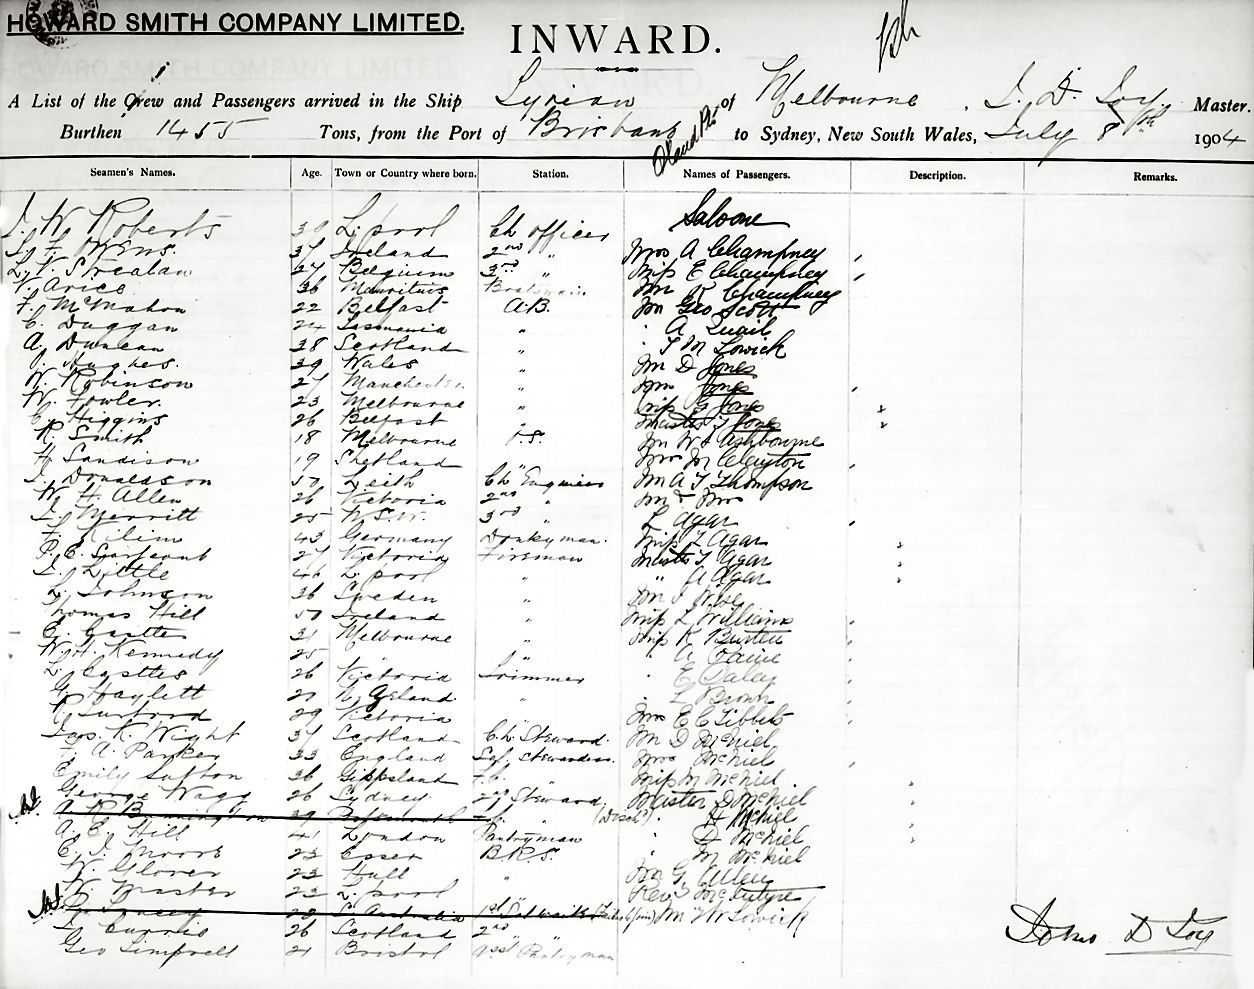 HOWARD SMITH COMPANY LIMITED.
INWARD.
A List of the Crew and Passengers arrived in the Ship Syrian of Melbourne, J. D. Loy Master.
Burthen 1455 Tons, from the Port of Brisbane to Sydney, New South Wales, July 8th 1904
Seamen's Names. Age. Town or Country where born. Station. Names of Passengers. Description. Remarks.
J. W. Roberts 30 L. pool Ch officer Saloone
37 Ireland 2nd " Mrs A Champney
27 Belgium 3rd " Miss E Champney
36 Mauritius Boatswain Champney
F. McMahon 22 Belfast A.B. Mr Geo Scott
C. Duggan 24 Tasmania " A Quail
A. Duncan 38 Scotland " T M Lowick
J. Hughes. 39 Wales " Mr D Jones
W. Robinson 27 Manchester. " Mrs Jones
W. Fowler. 23 Melbourne " Miss G Jones
C. Higgins 26 Belfast " Master T Jones
R. Smith 18 Melbourne O.S. Mr W J Ashbourne
H. Sandison 19 Shetland Mrs M Clayton
J. Donaldson 50 Leith Ch Engineer Mr A T Thompson
W. H. Allen 26 Victoria 2nd " Mr & Mrs
J. Merritt 25 N.S.W. 3rd " L Agar
F. Kilim 43 Germany Donkyman. Miss L Agar
P. E. Sargeant 27 Victoria Fireman Master T Agar
J. Little 46 L. pool " " A Agar
L. Johnson 36 Sweden " Mr J Wise
Thomas Hill 50 Ireland " Miss L Williams
C. Castles 31 Melbourne " Miss K Burton
W. H. Kennedy 25 " " A Paine
L. Castles 26 Victoria Trimmer E Daley
G. Haylett 21 " L Brown
29 Victoria Mrs E E Tibbets
Jas. K. Wight 34 Scotland Ch. Steward. Mr D McNiel
F. A. Parker 33 England Mrs McNiel
Emily Sutton 36 Gippsland " Miss M McNiel
George Wagg 26 Sydney 2nd Steward Master D McNiel
(Disch) H McNiel
A. E. Hill 41 London Pantryman D McNiel
C. J. Moore 23 Essex B.R.S. M McNiel
W. Glover 23 Hull " Mr G Allen
W. Master 23 L. pool Rev J McIntyre
28 S. Australia Mr W Lowick
J. Currie 26 Scotland 2nd "
Geo Simprell 21 Bristol Asst Pantryman
John D Loy